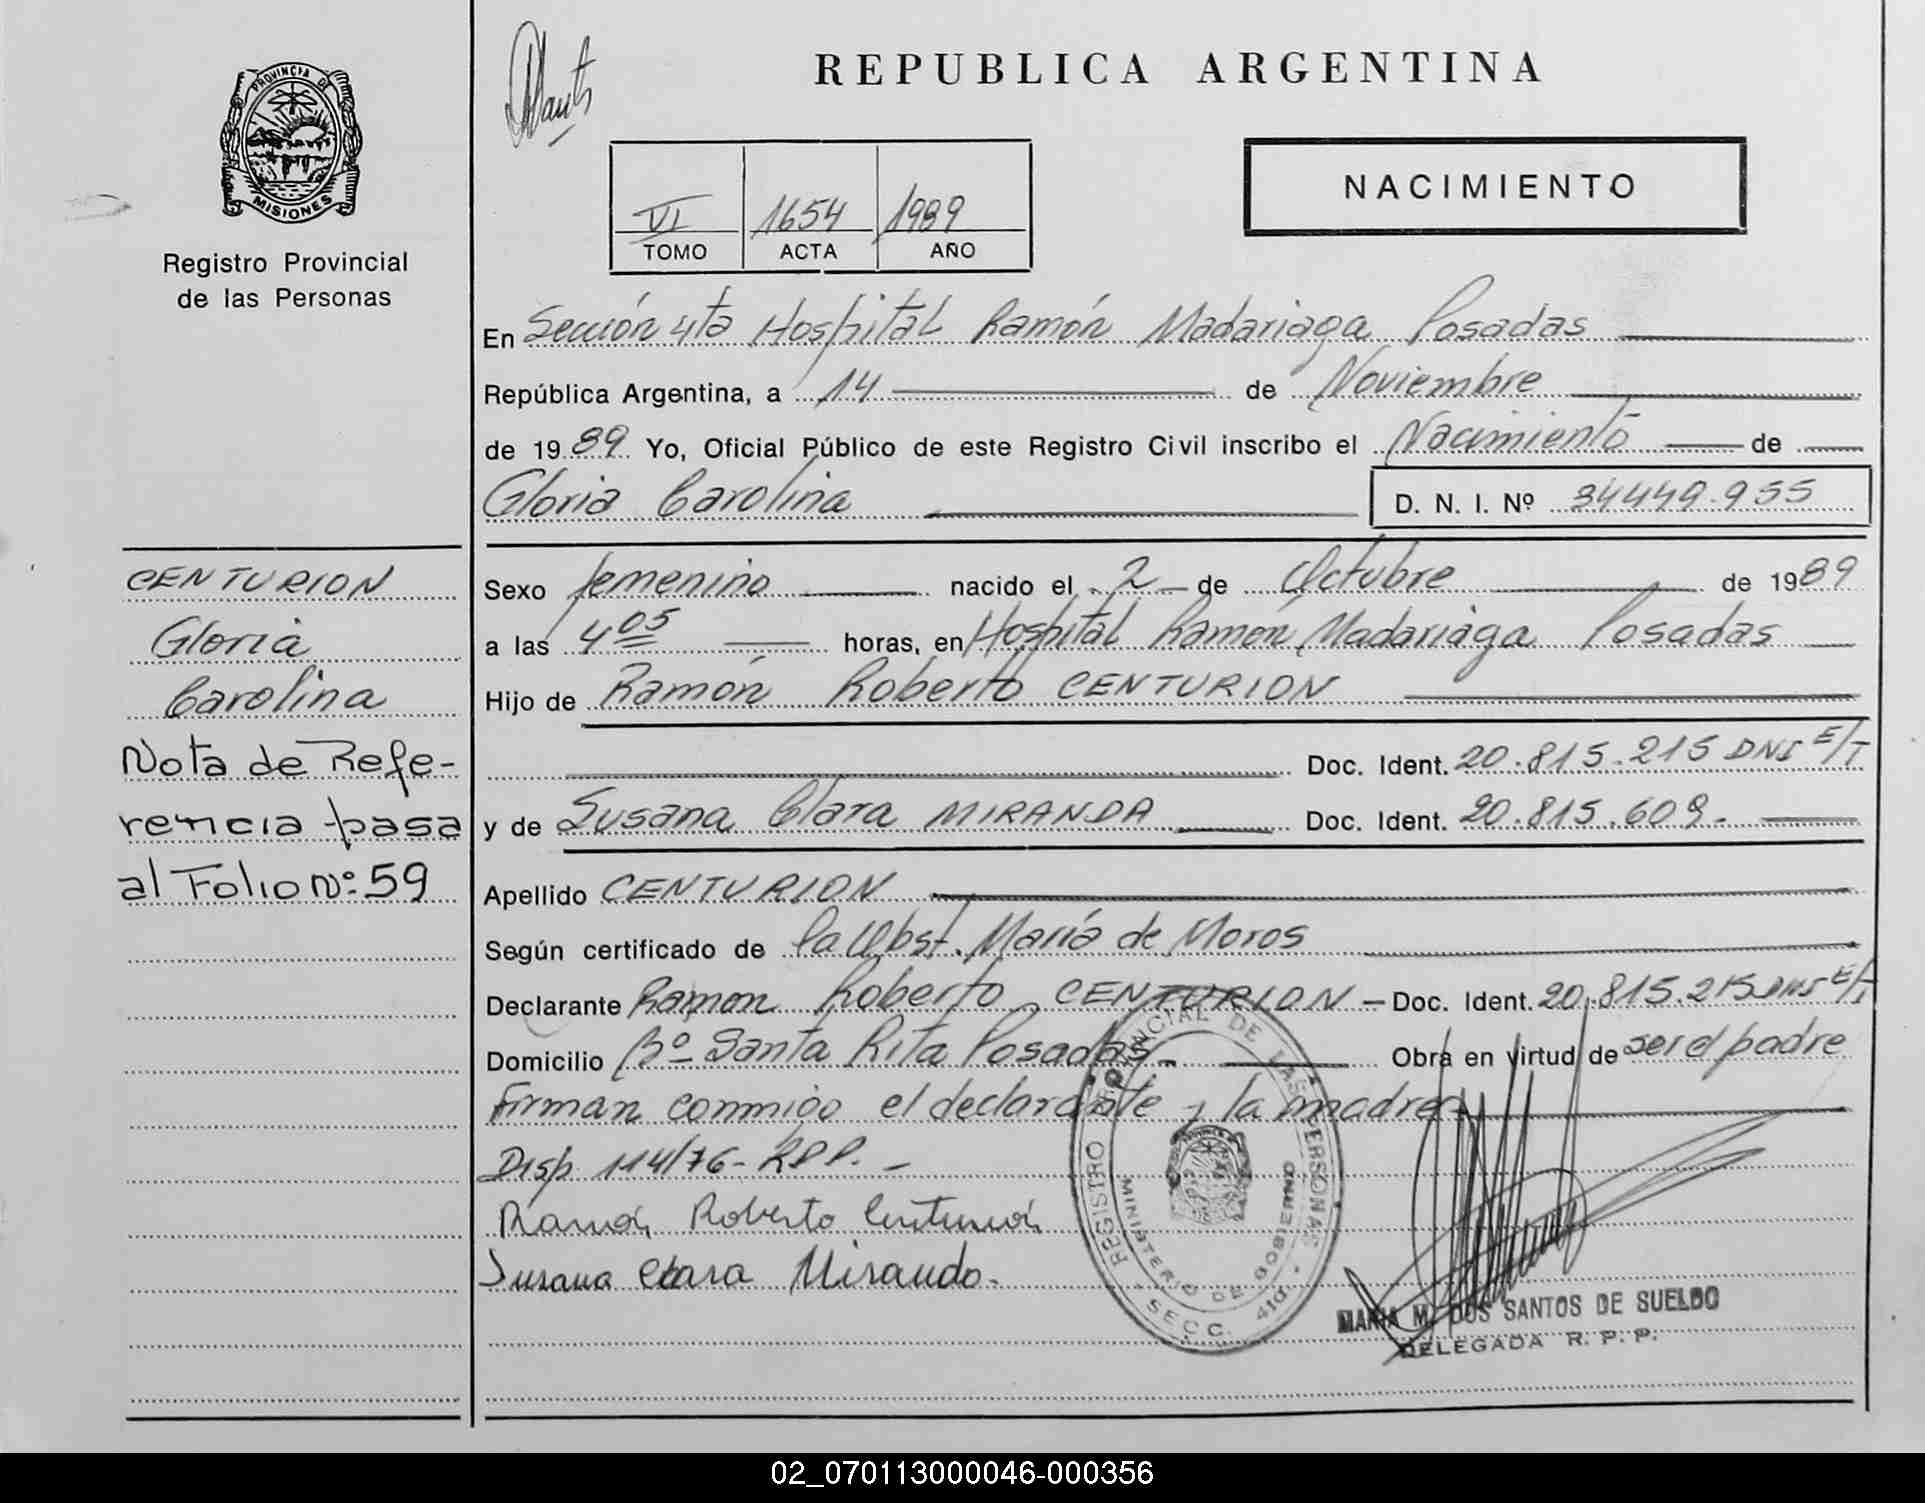 PROVINCIA DE
MISIONES
Registro Provincial
de las Personas
REPUBLICA ARGENTINA
NACIMIENTO
VI 1654 1989
TOMO ACTA AÑO
En Sección 4ta Hospital Ramón Madariaga Posadas
República Argentina, a 14 de Noviembre
de 1989 Yo, Oficial Público de este Registro Civil inscribo el Nacimiento de
Gloria Carolina D. N. I. Nº 34449.955
Sexo femenino nacido el 2 de Octubre de 1989
a las 4 05 horas, en Hospital Ramón Madariaga Posadas
Hijo de Ramón Roberto CENTURION
Doc. Ident. 20.815.215 DNI E/T
y de Susana Clara MIRANDA Doc. Ident. 20.815.609.
Apellido CENTURION
Según certificado de la Obst. María de Moros
Declarante Ramon Roberto CENTURION - Doc. Ident. 20.815.215 DNI E/T
Domicilio Bº Santa Rita Posadas. Obra en virtud de ser el padre
Firman conmigo el declarante y la madre
Disp. 114/76- RPP. -
Ramón Roberto Centurión
Susana Clara Miranda.
REGISTRO PROVINCIAL DE LAS PERSONAS
MINISTERIO DE GOBIERNO
SECC. 4ta.
MARIA M. DOS SANTOS DE SUELDO
DELEGADA R. P. P.
CENTURION
Gloria
Carolina
Nota de Refe-
rencia pasa
al Folio Nº 59
02_070113000046-000356